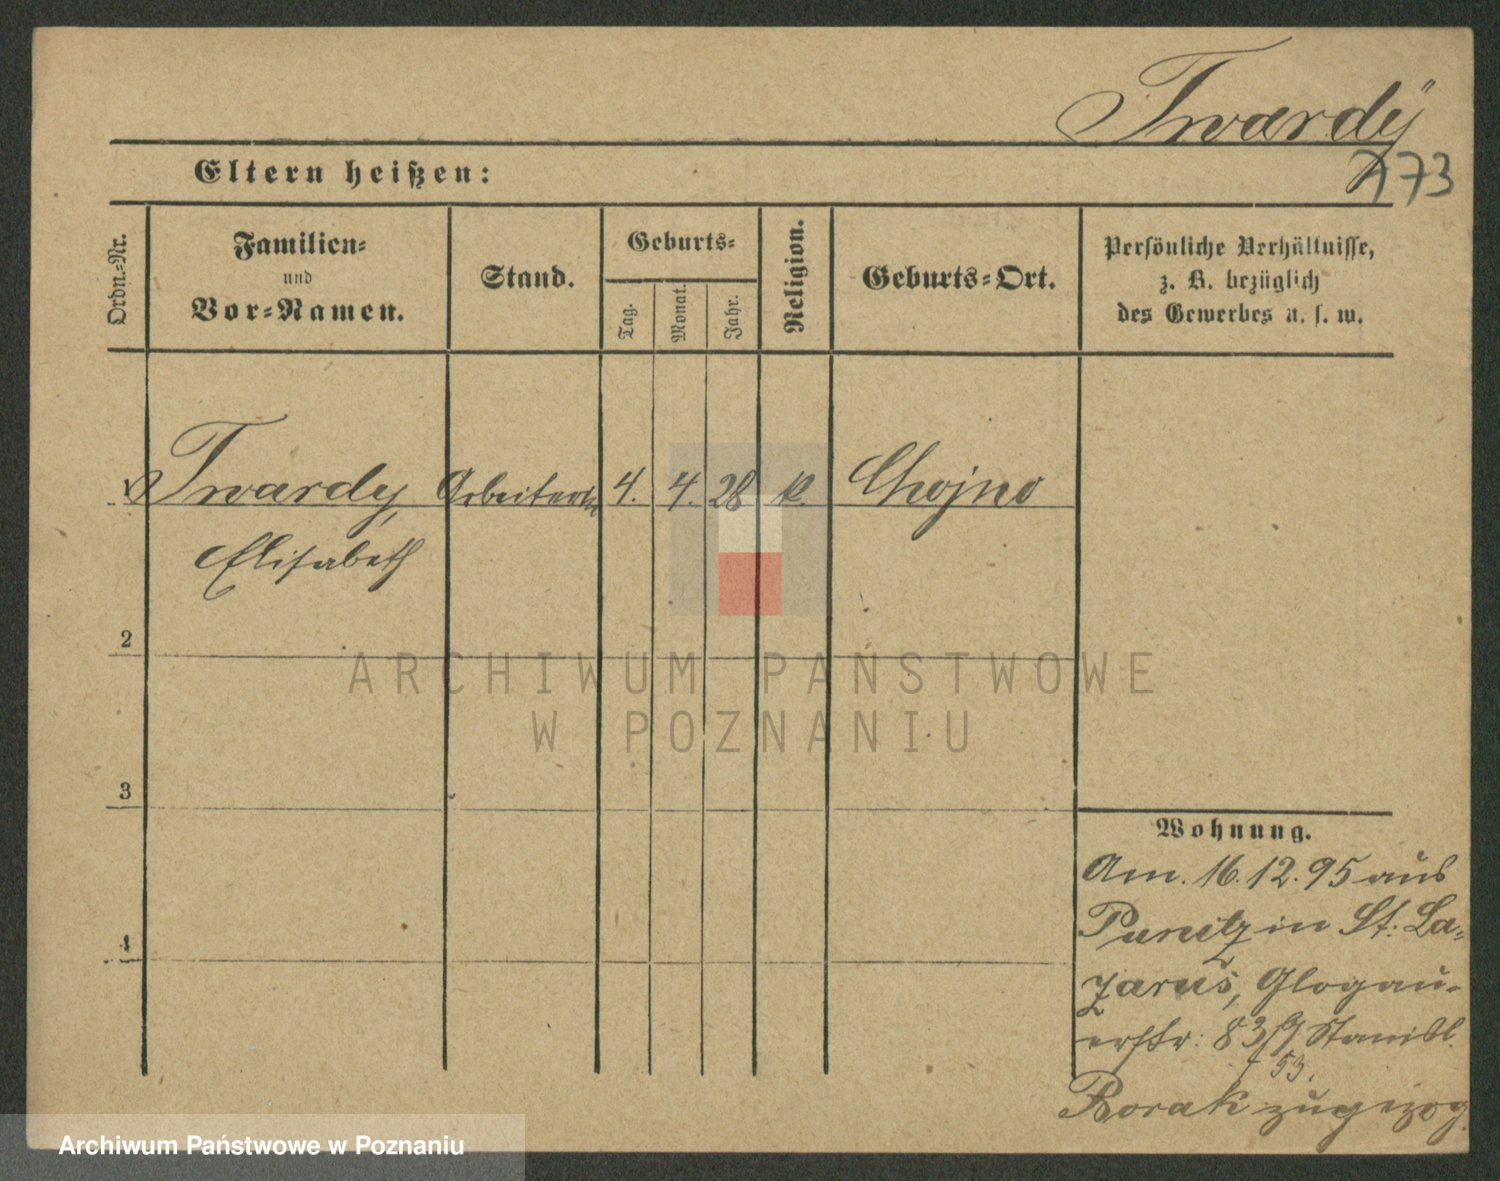 Twardÿ
273
Eltern heißen:
Ordn.-Nr.
Familien-
und
Vor-Namen.
Stand.
Geburts-
Tag.
Monat.
Jahr.
Religion.
Geburts-Ort.
Persönliche Verhältnisse,
z. B. bezüglich
des Gewerbes u. s. w.
1 Twardy, Arbeiterin 4. 4. 28 k. Chojno
Elisabeth
2
ARCHIWUM PAŃSTWOWE
W POZNANIU
3
Wohnung.
Am. 16.12.95 aus
Punitz in St. La-
zarus, Glogau-
erstr: 83 Stanisl.
53.
4
Borak zugezog.
Archiwum Państwowe w Poznaniu